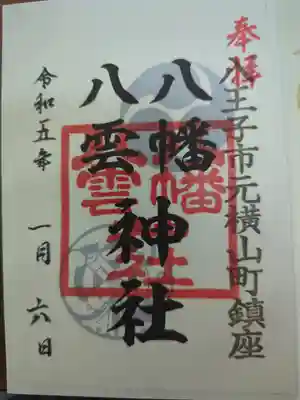 奉拝
八王子市元横山町鎮座
八幡神社
八雲
令和五年 一月 六日
八幡
八雲
神社